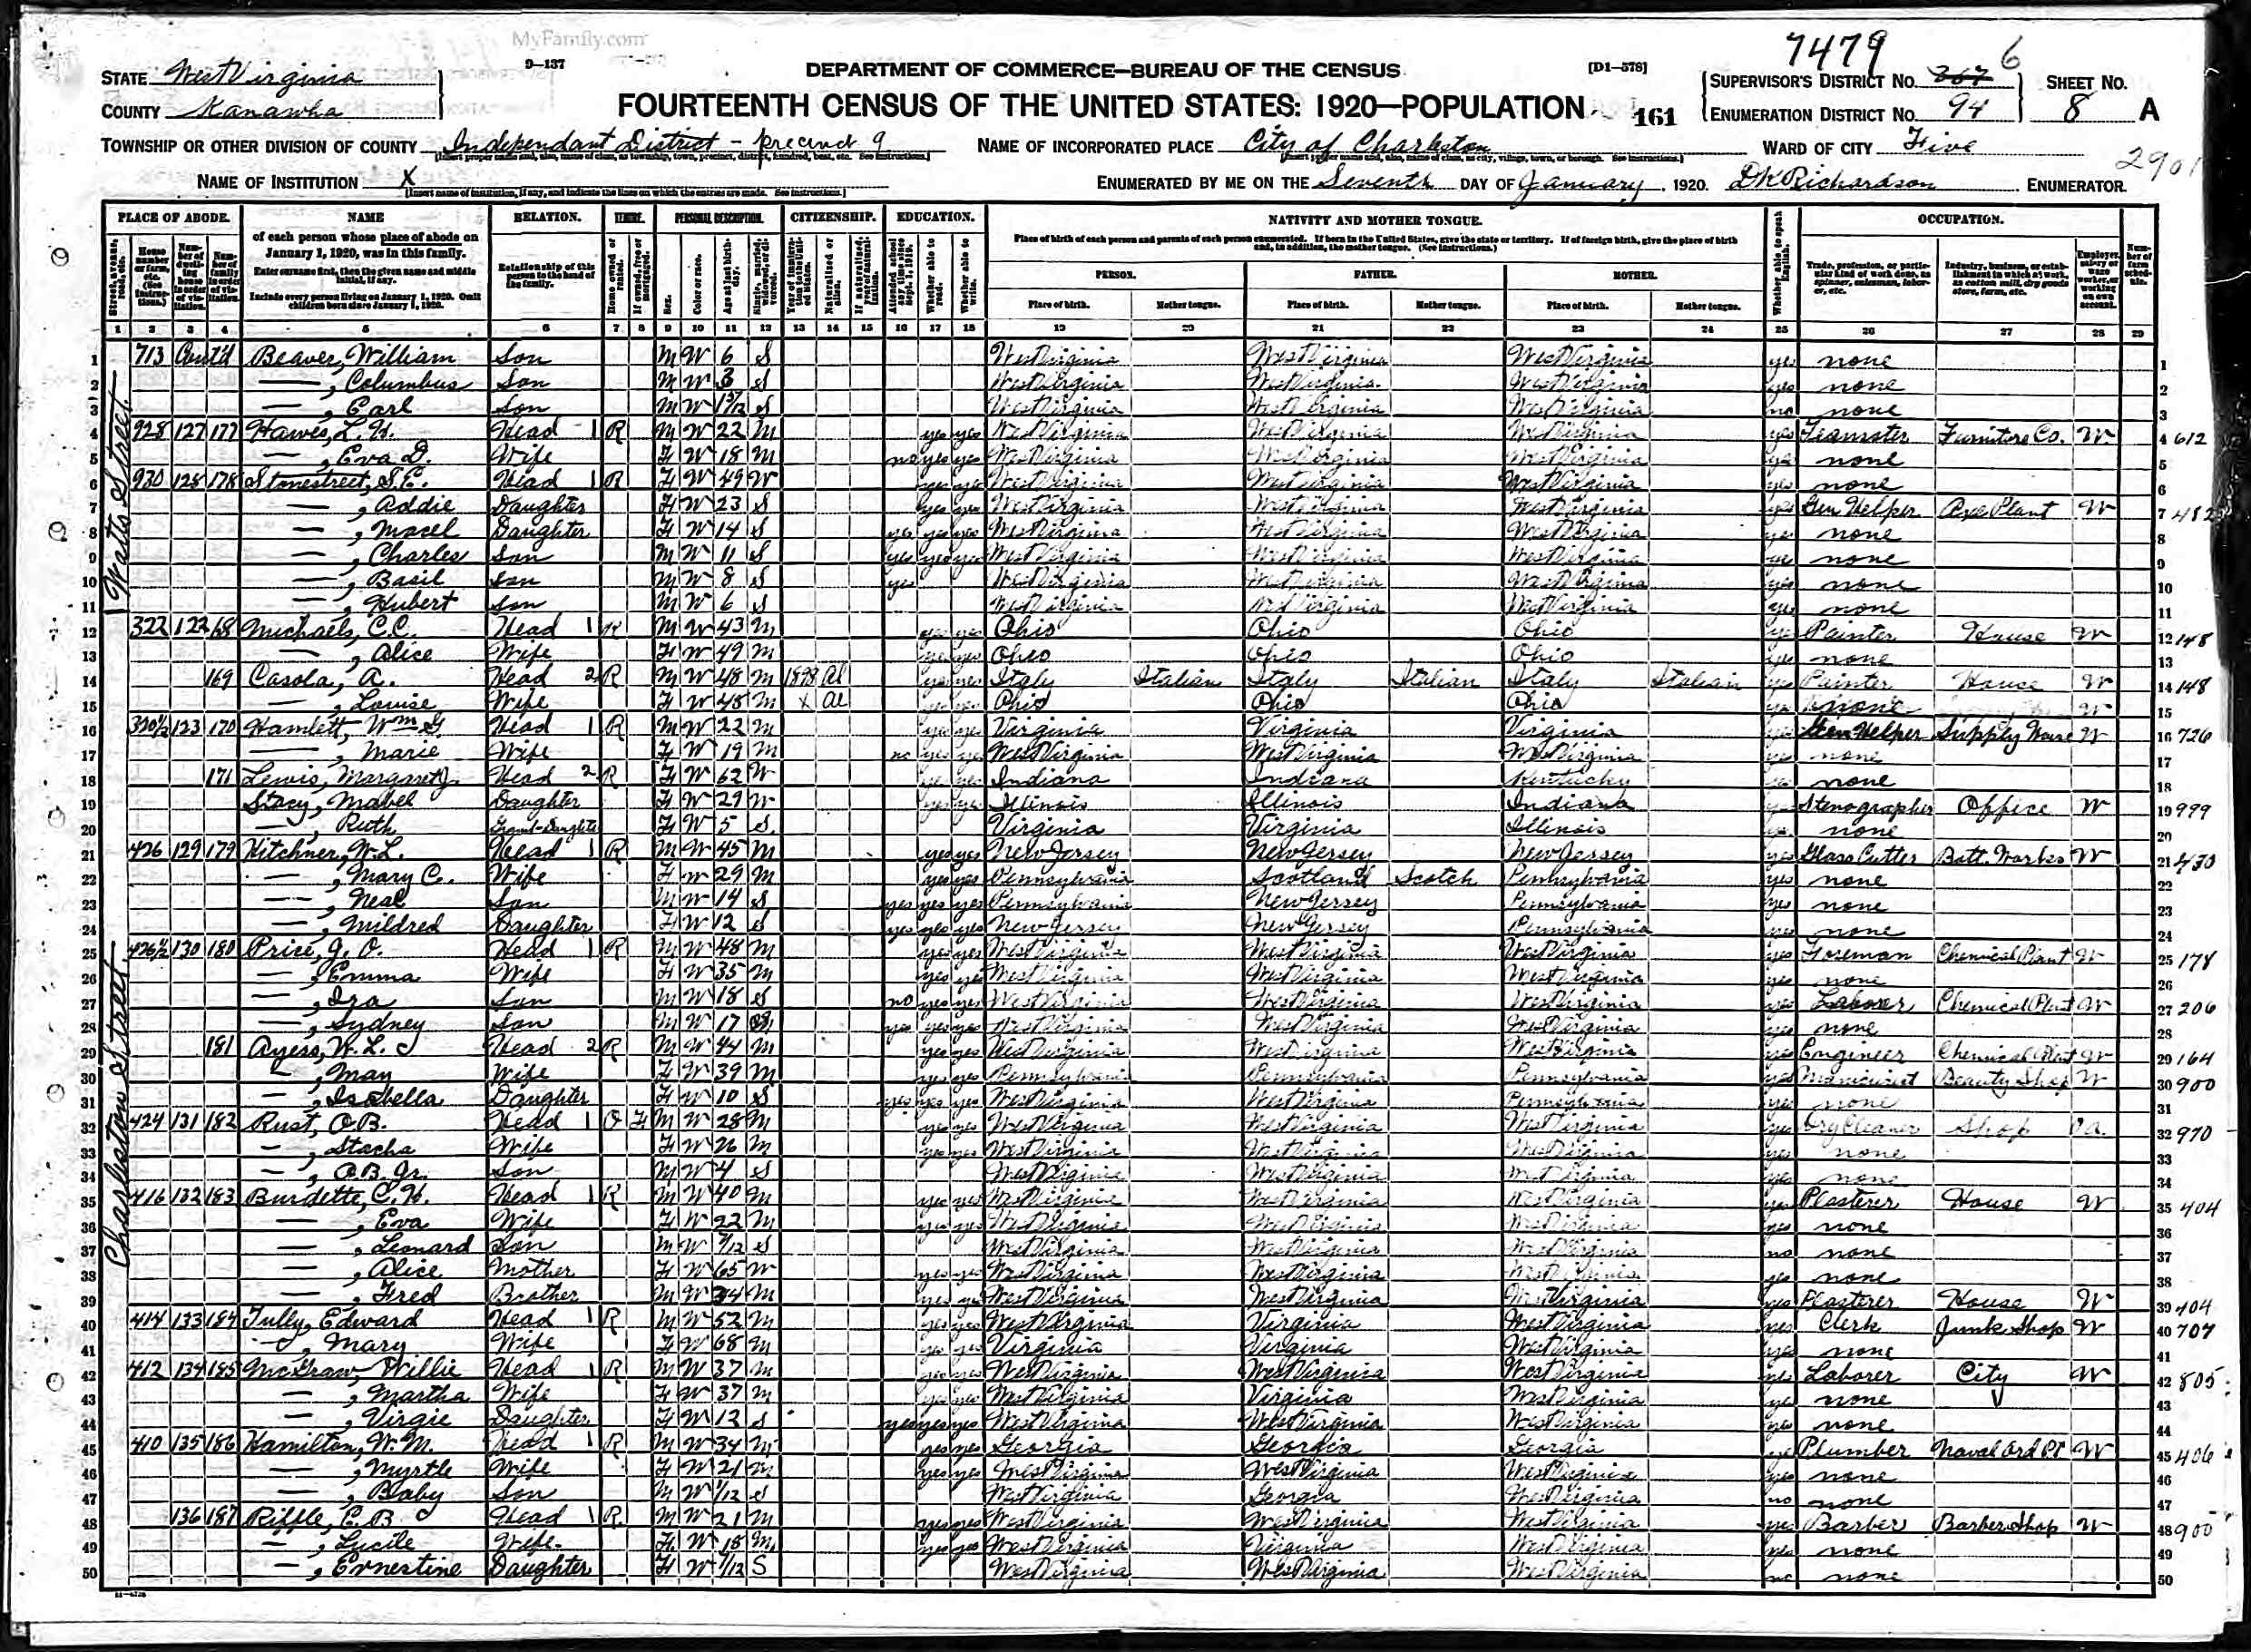 MyFamily.com
7479
9-137
[D1-578]
6
STATE West Virginia
DEPARTMENT OF COMMERCE—BUREAU OF THE CENSUS
SUPERVISOR'S DISTRICT No. 367
SHEET No.
COUNTY Kanawha
FOURTEENTH CENSUS OF THE UNITED STATES: 1920—POPULATION
161
ENUMERATION DISTRICT No. 94
8 A
TOWNSHIP OR OTHER DIVISION OF COUNTY Independant District - precinct 9
NAME OF INCORPORATED PLACE City of Charleston
WARD OF CITY Five
2901
NAME OF INSTITUTION X
ENUMERATED BY ME ON THE Seventh DAY OF January, 1920. DK Richardson ENUMERATOR.
PLACE OF ABODE. NAME RELATION. TENURE. PERSONAL DESCRIPTION. CITIZENSHIP. EDUCATION. NATIVITY AND MOTHER TONGUE. OCCUPATION.
of each person whose place of abode on January 1, 1920, was in this family.
Enter surname first, then the given name and middle initial, if any.
Include every person living on January 1, 1920. Omit children born since January 1, 1920.
Relationship of this person to the head of the family.
Place of birth of each person and parents of each person enumerated. If born in the United States, give the state or territory. If of foreign birth, give the place of birth and, in addition, the mother tongue. (See Instructions.)
PERSON. FATHER. MOTHER.
Place of birth. Mother tongue. Place of birth. Mother tongue. Place of birth. Mother tongue.
1 2 3 4 5 6 7 8 9 10 11 12 13 14 15 16 17 18 19 20 21 22 23 24 25 26 27 28 29
Watts Street
1 713 Cont'd Beaver, William Son M W 6 S West Virginia West Virginia West Virginia yes none 1
2 —, Columbus Son M W 3 S West Virginia West Virginia West Virginia yes none 2
3 —, Carl Son M W S West Virginia West Virginia West Virginia no none 3
4 928 127 177 Hawes, L. H. Head 1 R M W 22 M yes yes West Virginia West Virginia West Virginia yes Teamster Furniture Co. W 4 612
5 —, Eva D. Wife F W 18 M no yes yes West Virginia West Virginia West Virginia yes none 5
6 930 128 178 Stonestreet, S. E. Head 1 R F W 49 W yes yes West Virginia West Virginia West Virginia yes none 6
7 —, Addie Daughter F W 23 S yes yes West Virginia West Virginia West Virginia yes Gen Helper Axe Plant W 7 482
8 —, Macel Daughter F W 14 S yes yes yes West Virginia West Virginia West Virginia yes none 8
9 —, Charles Son M W 11 S yes yes yes West Virginia West Virginia West Virginia yes none 9
10 —, Basil Son M W 8 S yes West Virginia West Virginia West Virginia yes none 10
11 —, Hubert Son M W 6 S West Virginia West Virginia West Virginia yes none 11
Charleston Street.
12 322 122 168 Michaels, C. C. Head 1 R M W 43 M yes yes Ohio Ohio Ohio yes Painter House W 12 148
13 —, Alice Wife F W 49 M yes yes Ohio Ohio Ohio yes none 13
14 169 Casola, A. Head 2 R M W 48 M 1898 Al yes yes Italy Italian Italy Italian Italy Italian yes Painter House W 14 148
15 —, Louise Wife F W 48 M X Al yes yes Ohio Ohio Ohio yes none W 15
16 320½ 123 170 Hamlett, Wm G. Head 1 R M W 22 M yes yes Virginia Virginia Virginia yes Gen Helper Supply House W 16 726
17 —, Marie Wife F W 19 M no yes yes West Virginia West Virginia West Virginia yes none 17
18 171 Lewis, Margaret J. Head 2 R F W 62 W yes yes Indiana Indiana Kentucky yes none 18
19 Stacy, Mabel Daughter F W 29 W yes yes Illinois Illinois Indiana yes Stenographer Office W 19 999
20 —, Ruth Grand-Daughter F W 5 S Virginia Virginia Illinois yes none 20
21 426 129 179 Hitchner, W. L. Head 1 R M W 45 M yes yes New Jersey New Jersey New Jersey yes Glass Cutter Bott. Works W 21 430
22 —, Mary C. Wife F W 29 M yes yes Pennsylvania Scotland Scotch Pennsylvania yes none 22
23 —, Neal Son M W 14 S yes yes yes Pennsylvania New Jersey Pennsylvania yes none 23
24 —, Mildred Daughter F W 12 S yes yes yes New Jersey New Jersey Pennsylvania yes none 24
25 426½ 130 180 Price, J. O. Head 1 R M W 48 M yes yes West Virginia West Virginia West Virginia yes Foreman Chemical Plant W 25 178
26 —, Emma Wife F W 35 M yes yes West Virginia West Virginia West Virginia yes none 26
27 —, Ira Son M W 18 S no yes yes West Virginia West Virginia West Virginia yes Laborer Chemical Plant W 27 206
28 —, Sydney Son M W 17 S yes yes yes West Virginia West Virginia West Virginia yes none 28
29 181 Ayers, W. L. Head 2 R M W 44 M yes yes West Virginia West Virginia West Virginia yes Engineer Chemical Plant W 29 164
30 —, May Wife F W 39 M yes yes Pennsylvania Pennsylvania Pennsylvania yes Manicurist Beauty Shop W 30 900
31 —, Isabella Daughter F W 10 S yes yes yes West Virginia West Virginia Pennsylvania yes none 31
32 424 131 182 Rust, O. B. Head 1 O F M W 28 M yes yes West Virginia West Virginia West Virginia yes Dry Cleaner Shop 32 970
33 —, Stacha Wife F W 26 M yes yes West Virginia West Virginia West Virginia yes none 33
34 —, O. B. Jr. Son M W 4 S West Virginia West Virginia West Virginia yes none 34
35 416 132 183 Burdette, C. H. Head 1 R M W 40 M yes yes West Virginia West Virginia West Virginia yes Plasterer House W 35 404
36 —, Eva Wife F W 22 M yes yes West Virginia West Virginia West Virginia yes none 36
37 —, Leonard Son M W S West Virginia West Virginia West Virginia no none 37
38 —, Alice Mother F W 65 W yes yes West Virginia West Virginia West Virginia yes none 38
39 —, Fred Brother M W 34 M yes yes West Virginia West Virginia West Virginia yes Plasterer House W 39 404
40 414 133 184 Tully, Edward Head 1 R M W 52 M yes yes West Virginia Virginia West Virginia yes Clerk Junk Shop W 40 704
41 —, Mary Wife F W 68 M yes yes Virginia Virginia West Virginia yes none 41
42 412 134 185 McGraw, Willie Head 1 R M W 37 M yes yes West Virginia West Virginia West Virginia yes Laborer City W 42 805
43 —, Martha Wife F W 37 M yes yes West Virginia Virginia West Virginia yes none 43
44 —, Virgie Daughter F W 12 S yes yes yes West Virginia West Virginia West Virginia yes none 44
45 410 135 186 Hamilton, W. M. Head 1 R M W 34 M yes yes Georgia Georgia Georgia yes Plumber Naval Ord Pt W 45 406
46 —, Myrtle Wife F W 21 M yes yes West Virginia West Virginia West Virginia yes none 46
47 —, Baby Son M W 1/12 S West Virginia Georgia West Virginia no none 47
48 136 187 Riffle, C. B. Head 1 R M W 21 M yes yes West Virginia West Virginia West Virginia yes Barber Barber Shop W 48 900
49 —, Lucile Wife F W 18 M yes yes West Virginia Virginia West Virginia yes none 49
50 —, Ernestine Daughter F W 1/12 S West Virginia West Virginia West Virginia no none 50